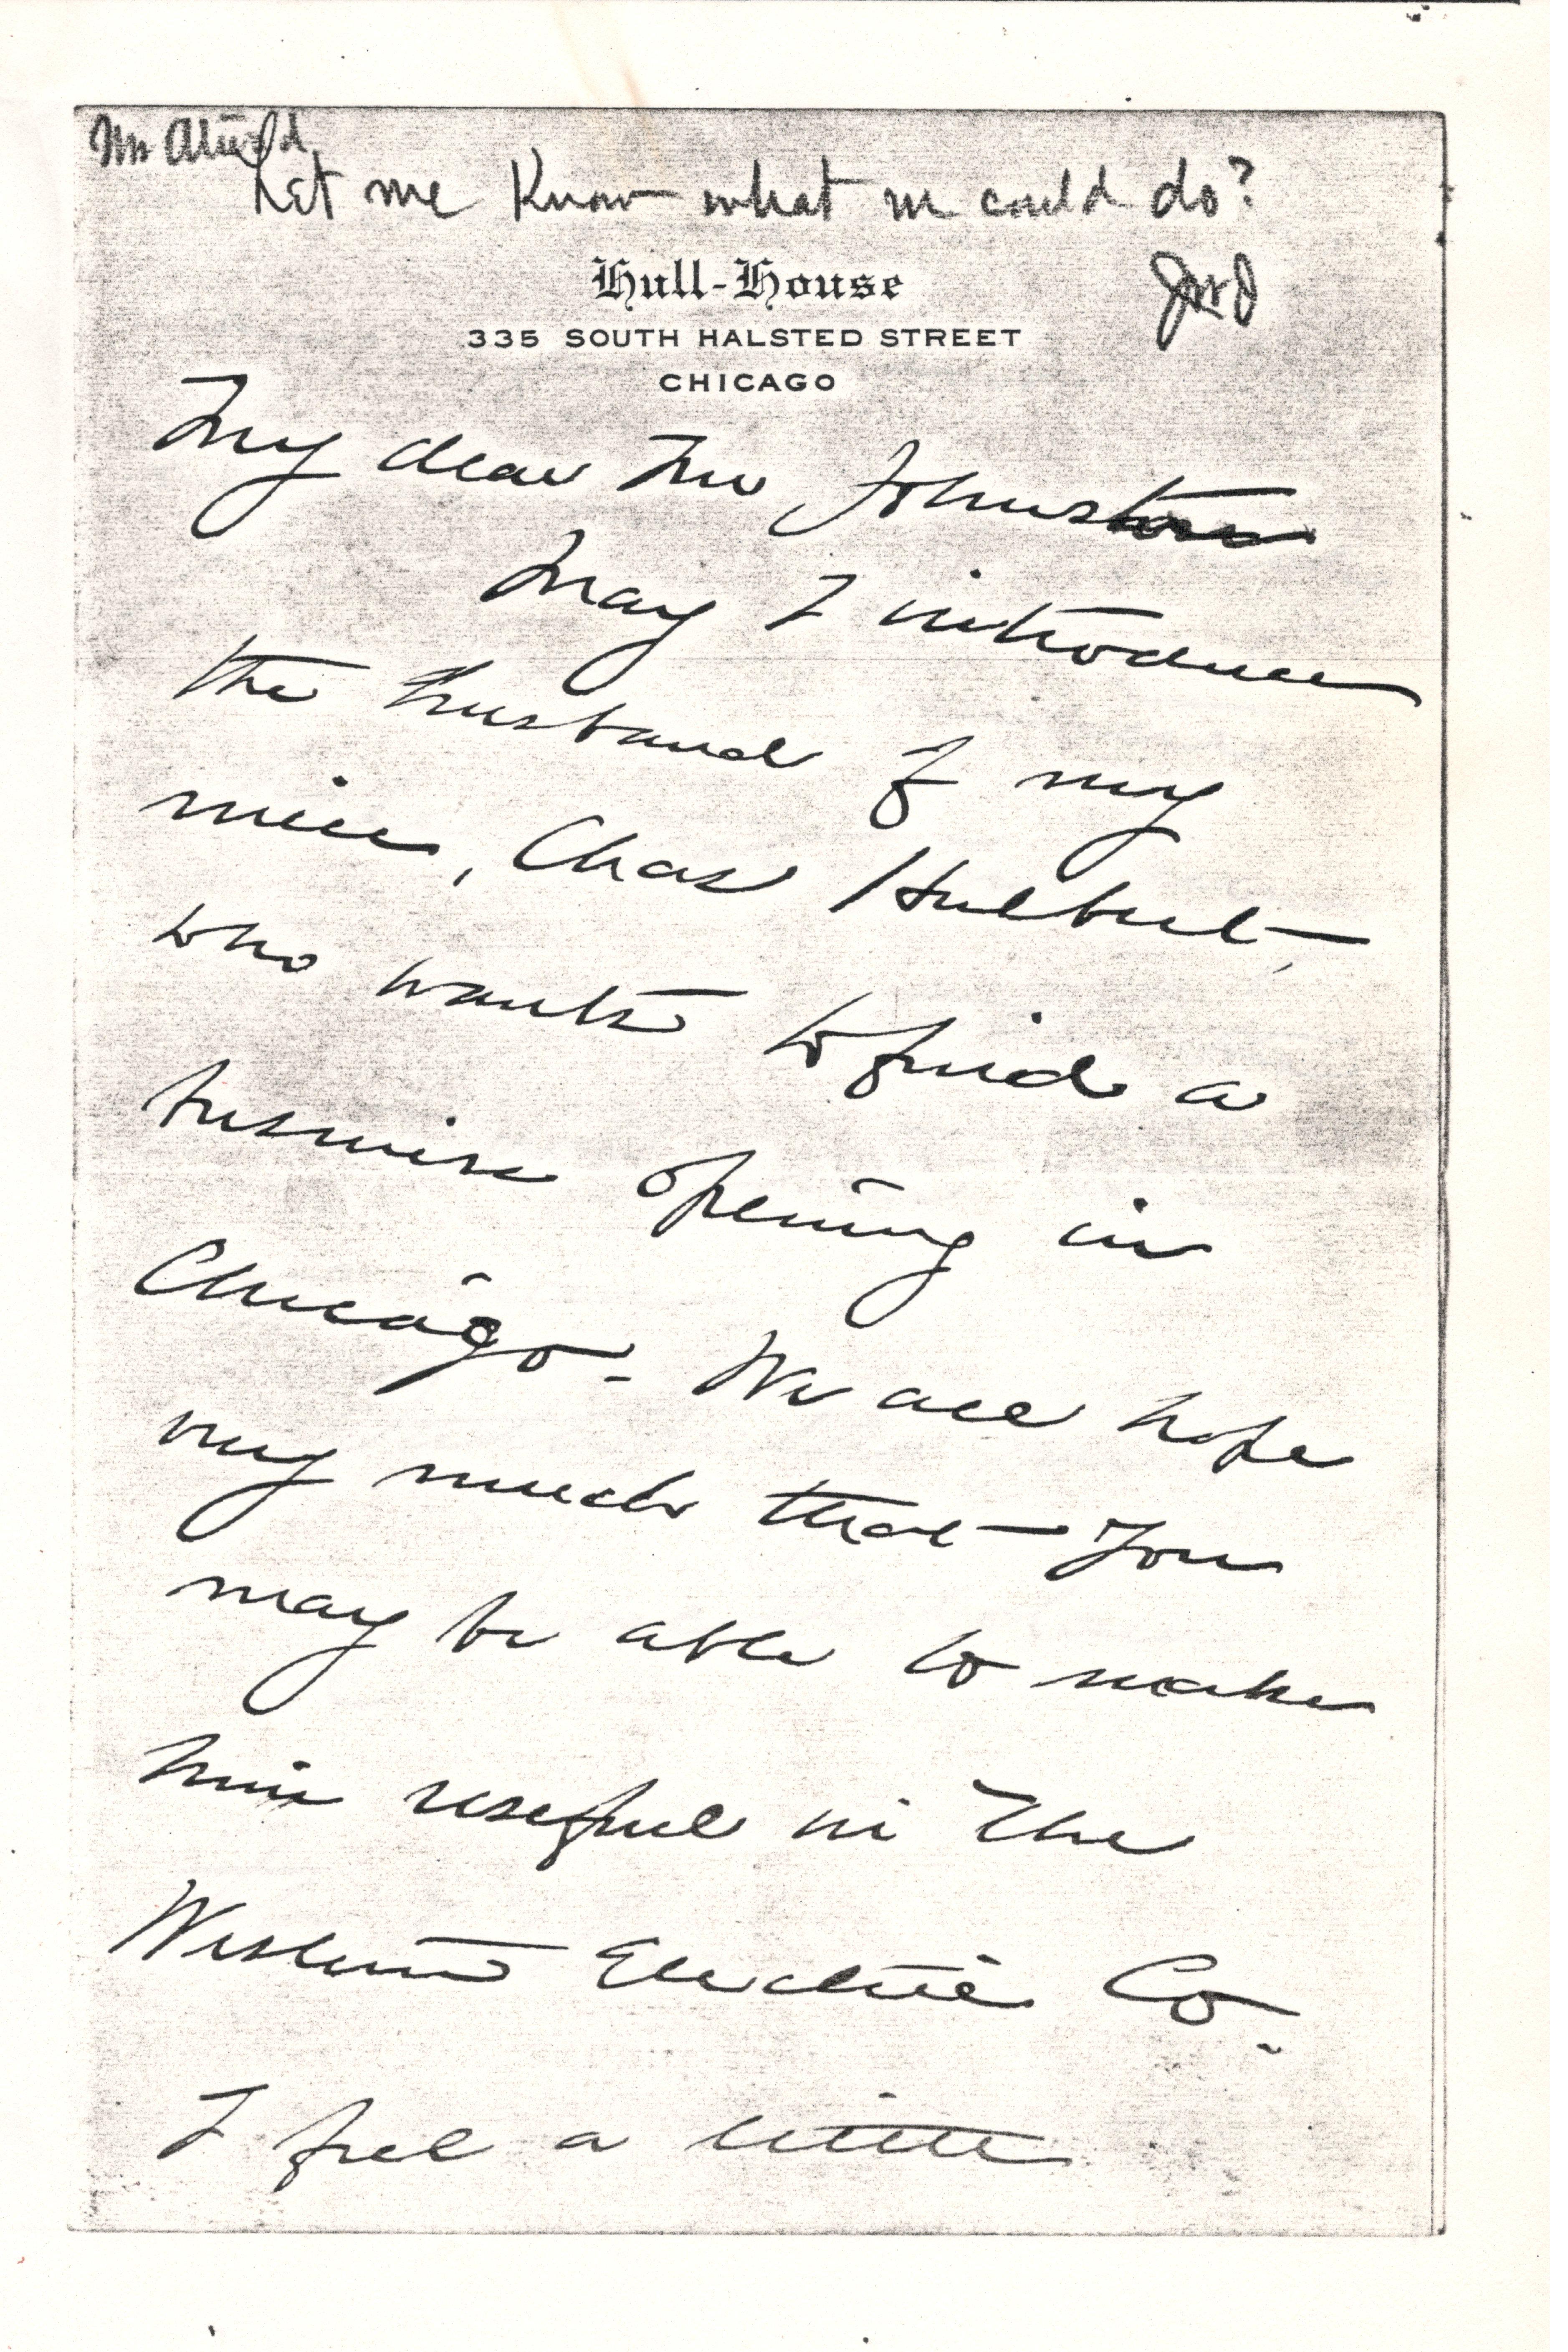 Mr
Let me Know what we could do?
Hull-House
335 SOUTH HALSTED STREET
CHICAGO
My dear Mr Johnston
May I introduce
the husband of my
niece, Chas Hulbert,
who wants to find a
business opening in
Chicago. We all hope
very much that you
may be able to make
him useful in the
Western Electric Co.
I feel a little